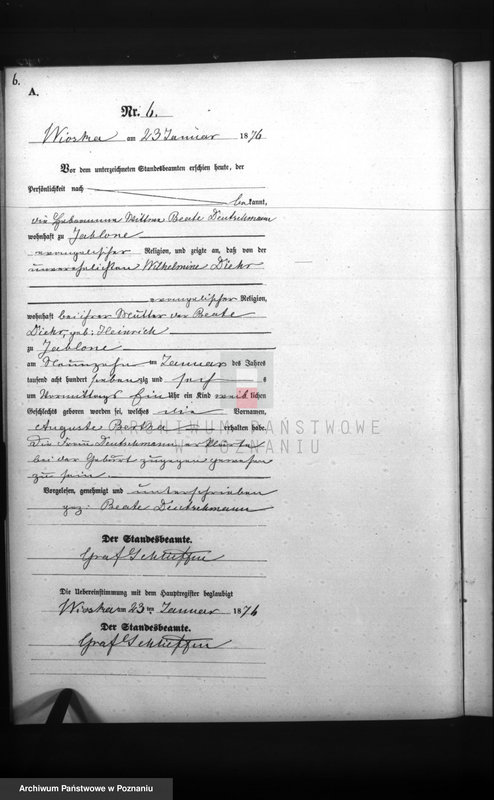 6.
A.
Nr. 6.
Wioska am 23 Januar 1876
Vor dem unterzeichneten Standesbeamten erschien heute, der
Persönlichkeit nach
bekannt,
die Hebeamme Wittwe Beate Deutschmann
wohnhaft zu Jablone
evangelischer Religion, und zeigte an, daß von der
unverehelichten Wilhelmine Dickr
evangelischer Religion,
wohnhaft bei ihrer Mutter der Beate
Dickr, geb: Heinrich
zu Jablone
am Neunzehn ten Januar des Jahres
tausend acht hundert siebenzig und sechs
um Vormittags Ein Uhr ein Kind weiblichen
Geschlechts geboren worden sei, welches die Vornamen,
Auguste Bertha erhalten habe.
Die Frau Deutschmann erklärte
bei der Geburt zugegen gewesen
zu sein.
Vorgelesen, genehmigt und unterschrieben
gez: Beate Deutschmann
Der Standesbeamte.
Graf Schlieffen
Die Uebereinstimmung mit dem Hauptregister beglaubigt
Wioska am 23 ten Januar 1876
Der Standesbeamte.
Graf Schlieffen
ARCHIWUM PAŃSTWOWE
W POZNANIU
Archiwum Państwowe w Poznaniu